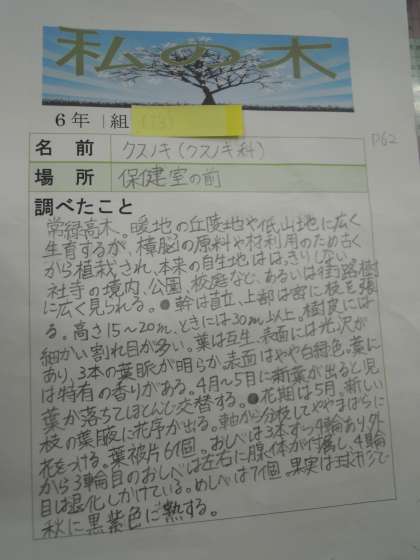 私の木
6年 1組
P62
名前 クスノキ(クスノキ科)
場所 保健室の前
調べたこと
常緑高木。暖地の丘陵地や低山地に広く
生育するが、樟脳の原料や材利用のため古く
から植栽され、本来の自生地ははっきりしない
社寺の境内、公園、校庭など、あるいは街路樹
に広く見られる。●幹は直立、上部は密に枝を張
る。高さ15~20m、ときには30m以上。樹皮には
細かい割れ目が多い。葉は互生、表面には光沢が
あり、3本の葉脈が明らか。表面はやや白緑色。葉に
は特有の香りがある。4月~5月に新葉が出ると児
葉が落ちてほとんど交替する。●花期は5月。新しい
枝の葉腋に花序が出る。軸から分枝してややまばらに
花をつける。葉被片6個。おしべは3本ずつ4輪あり、外
から3輪目のおしべは左右に腺体が付属し、4輪
目は退化しかけている。めしべは1個。果実は球形で
秋に黒紫色に熟する。